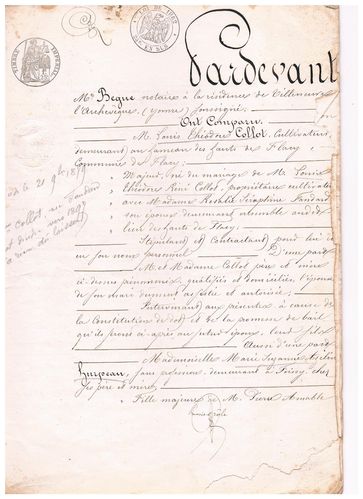 Pardevant
Me Begue notaire à la résidence de Villeneuve
l'Archevêque (Yonne) soussigné
Ont Comparu
M. Louis Théodore Collot, Cultivateur,
demeurant au hameau des hauts de Flacy
Commune de Flacy
Majeur, né du mariage de M. Louis
Théodore Collot, propriétaire cultivateur
avec Madame Rosalie Séraphine
son épouse demeurant ensemble audit
lieu des hauts de Flacy
Stipulant et Contractant pour lui et
en son nom personnel D'une part
M. et Madame Collot père et mère
ci-dessus prénommés, qualifiés et domiciliés, l'épouse
de son mari dûment assistée et autorisée
Intervenant aux présentes à cause de
la Constitution de dot et de la promesse de bail
qu'ils feront ci-après au futur époux, leur fils
Aussi d'une part
Mademoiselle Marie Suzanne
Hurpeau, sans profession, demeurant à chez
ses père et mère
Fille majeure de M. Pierre Amable